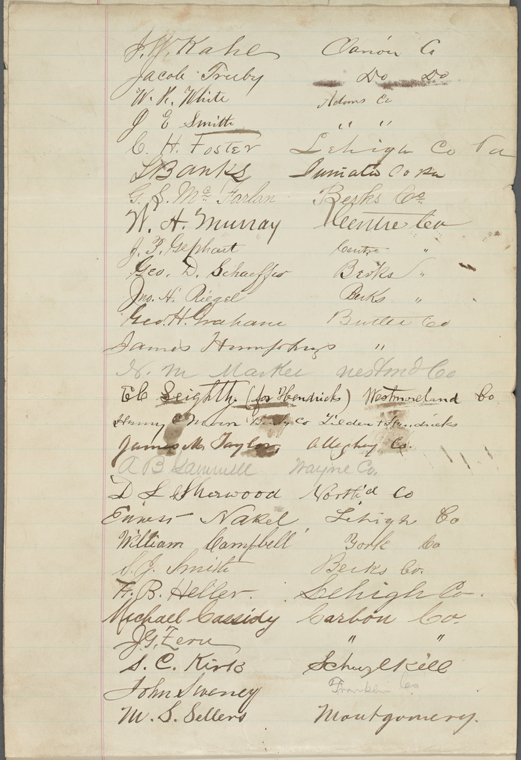 J. W. Kahl Clarion Co
Jacob Truby Do Do
W. R. White Adams Co
J E Smith " "
C. H. Foster Lehigh Co Pa
L Banks Juniata Co Pa
G. S. Mc Farlan Berks Co
W. H. Murray Centre Co
J. F. Gephart Centre "
Geo. D. Schaeffer Berks "
Jno. H. Riegel Berks "
Geo. H. Graham Butler Co
James Humphreys "
N. M Markee Westmd Co
E C Leighty (for Hendricks) Westmoreland Co
Co Hendricks
James M. Taylor Allegheny Co.
A B Sammell Wayne Co.
D L Sherwood North'd Co
Ernest Nakel, Lehigh Co
William Campbell York Co
S. J. Smith Berks Co.
F. B. Heller. Lehigh Co.
Michael Cassidy Carbon Co.
J. G. Zern " "
S. C. Kirk Schuylkill
John Sweney Franklin Co
M. S. Sellers Montgomery.